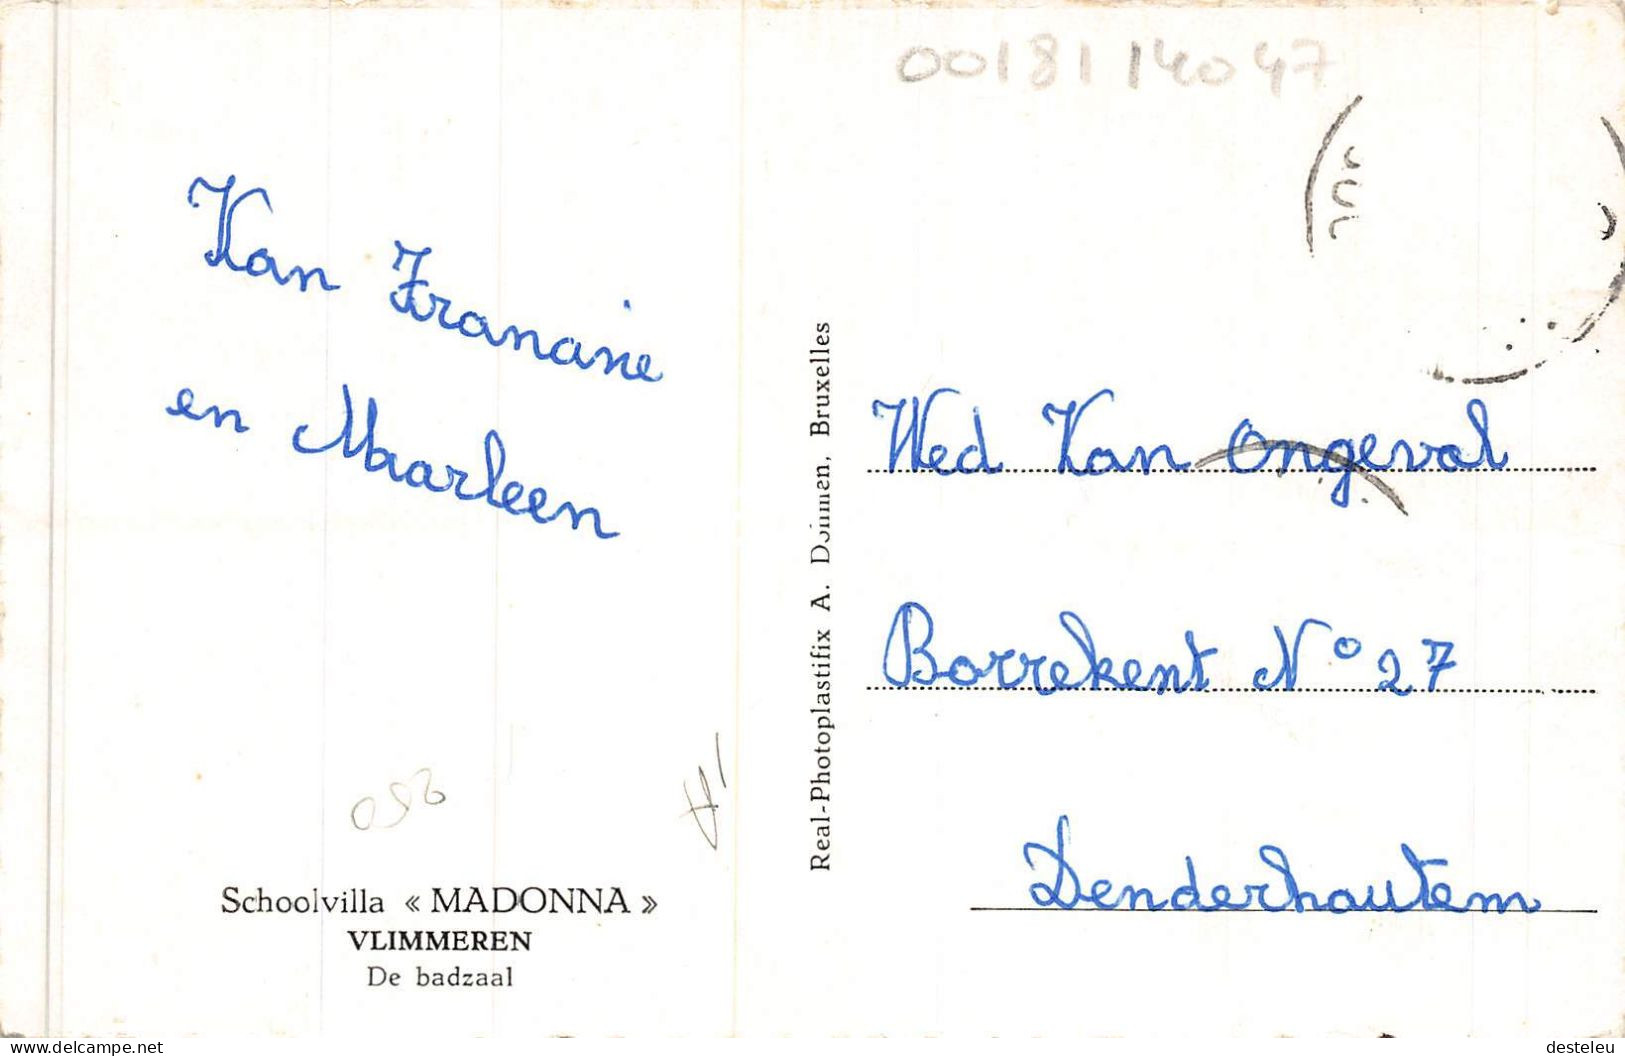 00181 14047
Van Franarie
en Maarleen
Wed Van Ongeval
Borrekent N° 27
Denderhoutem
Real-Photoplastifix A. Dohmen, Bruxelles
Schoolvilla « MADONNA »
VLIMMEREN
De badzaal
delcampe.net
desteleu